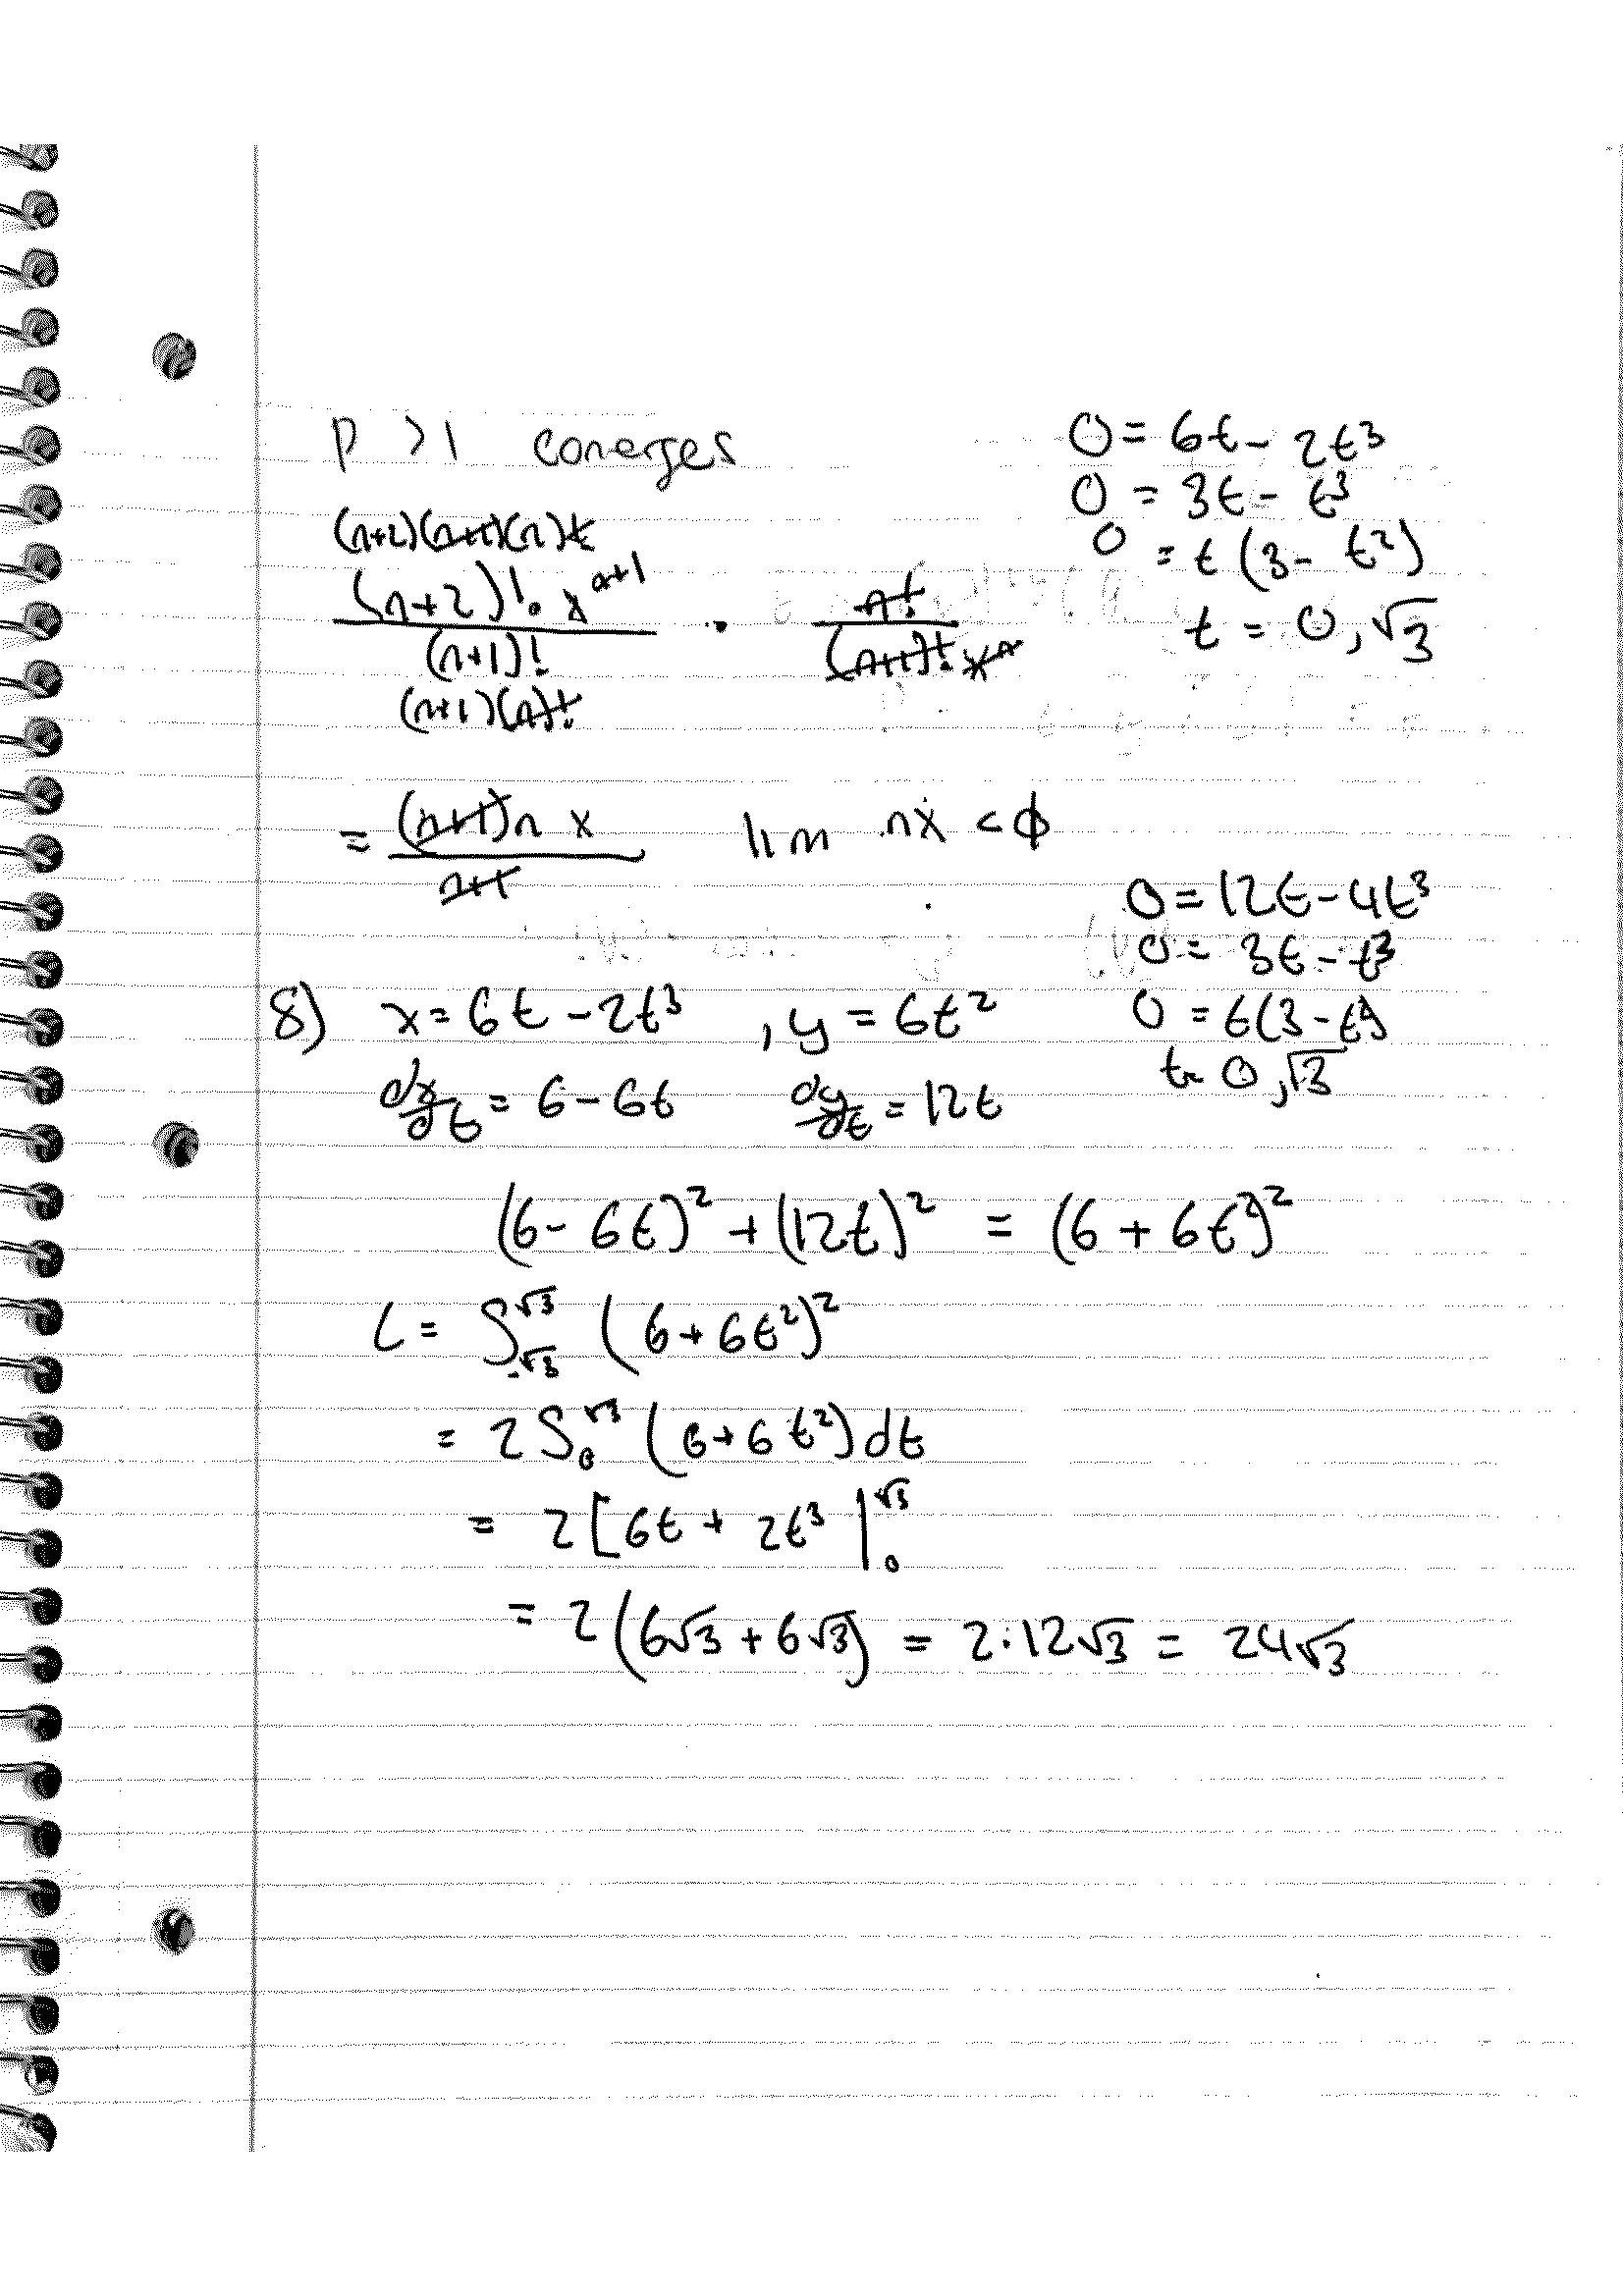 p > 1 converges
(n+2)(n+1)(n)!
(n+2)! x^{n+1} / (n+1)! · n! / (n+1)! x^n
(n+1)(n)!
= (n+1)n x / n+1    lim nx < φ
0 = 6t - 2t³
0 = 3t - t³
0 = t(3 - t²)
t = 0, √3
0 = 12t - 4t³
0 = 3t - t³
0 = t(3 - t²)
t = 0, √3
8) x = 6t - 2t³ , y = 6t²
dx/dt = 6 - 6t    dy/dt = 12t
(6 - 6t)² + (12t)² = (6 + 6t²)²
L = ∫_{-√3}^{√3} (6 + 6t²)²
= 2 ∫_0^{√3} (6 + 6t²) dt
= 2 [6t + 2t³ |_0^{√3}
= 2 (6√3 + 6√3) = 2·12√3 = 24√3